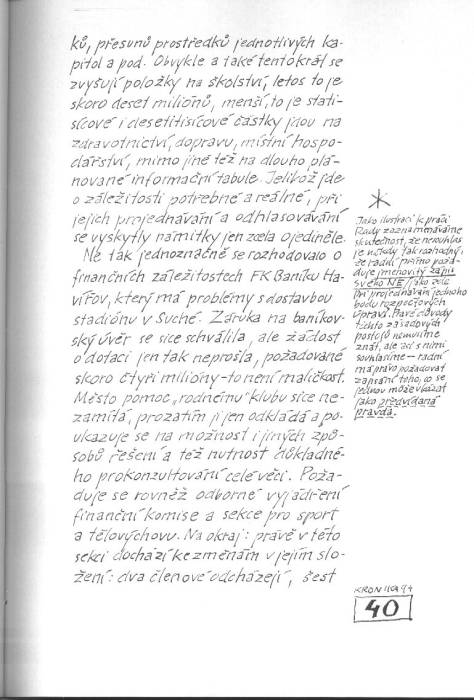 ků, přesunů prostředků jednotlivých ka-
pitol a pod. Obvykle a také tentokrát se
zvyšují položky na školství, letos to je
skoro deset miliónů, menší, to je stati-
sícové i desetitisícové částky jdou na
zdravotnictví, dopravu, místní hospo-
dářství, mimo jiné též na dlouho plá-
nované informační tabule. Jelikož jde
o záležitosti potřebné a reálné, při
jejich projednávání a odhlasovávání
se vyskytly námitky jen zcela ojediněle.
Ne tak jednoznačně se rozhodovalo o
finančních záležitostech FK Baníku Ha-
vířov, který má problémy s dostavbou
stadiónu v Suché. Záruka na baníkov-
ský úvěr se sice schválila, ale žádost
o dotaci jen tak neprošla, požadované
skoro čtyři milióny - to není maličkost.
Město pomoc „rodnému" klubu sice ne-
zamítá, prozatím ji jen odkládá a po-
ukazuje se na možnost i jiných způ-
sobů řešení a též nutnost důkladné-
ho prokonzultování celé věci. Poža-
duje se rovněž odborné vyjádření
finanční komise a sekce pro sport
a tělovýchovu. Na okraj: právě v této
sekci dochází ke změnám v jejím slo-
žení: dva členové odcházejí, šest
Jako ilustraci k práci
Rady zaznamenáváme
skutečnost, že nesouhlas
je někdy tak rozhodný,
že radní přímo poža-
duje jmenovitý zápis
svého NE, jako zde
při projednávání jednoho
bodu rozpočtových
úprav. Pravé důvody
těchto zásadových
postojů nemusíme
znát, ale ač s nimi
souhlasíme - radní
má právo požadovat
zapsání toho, co se
jednou může ukázat
jako předvídaná
pravda.
KRONIKA 94
40